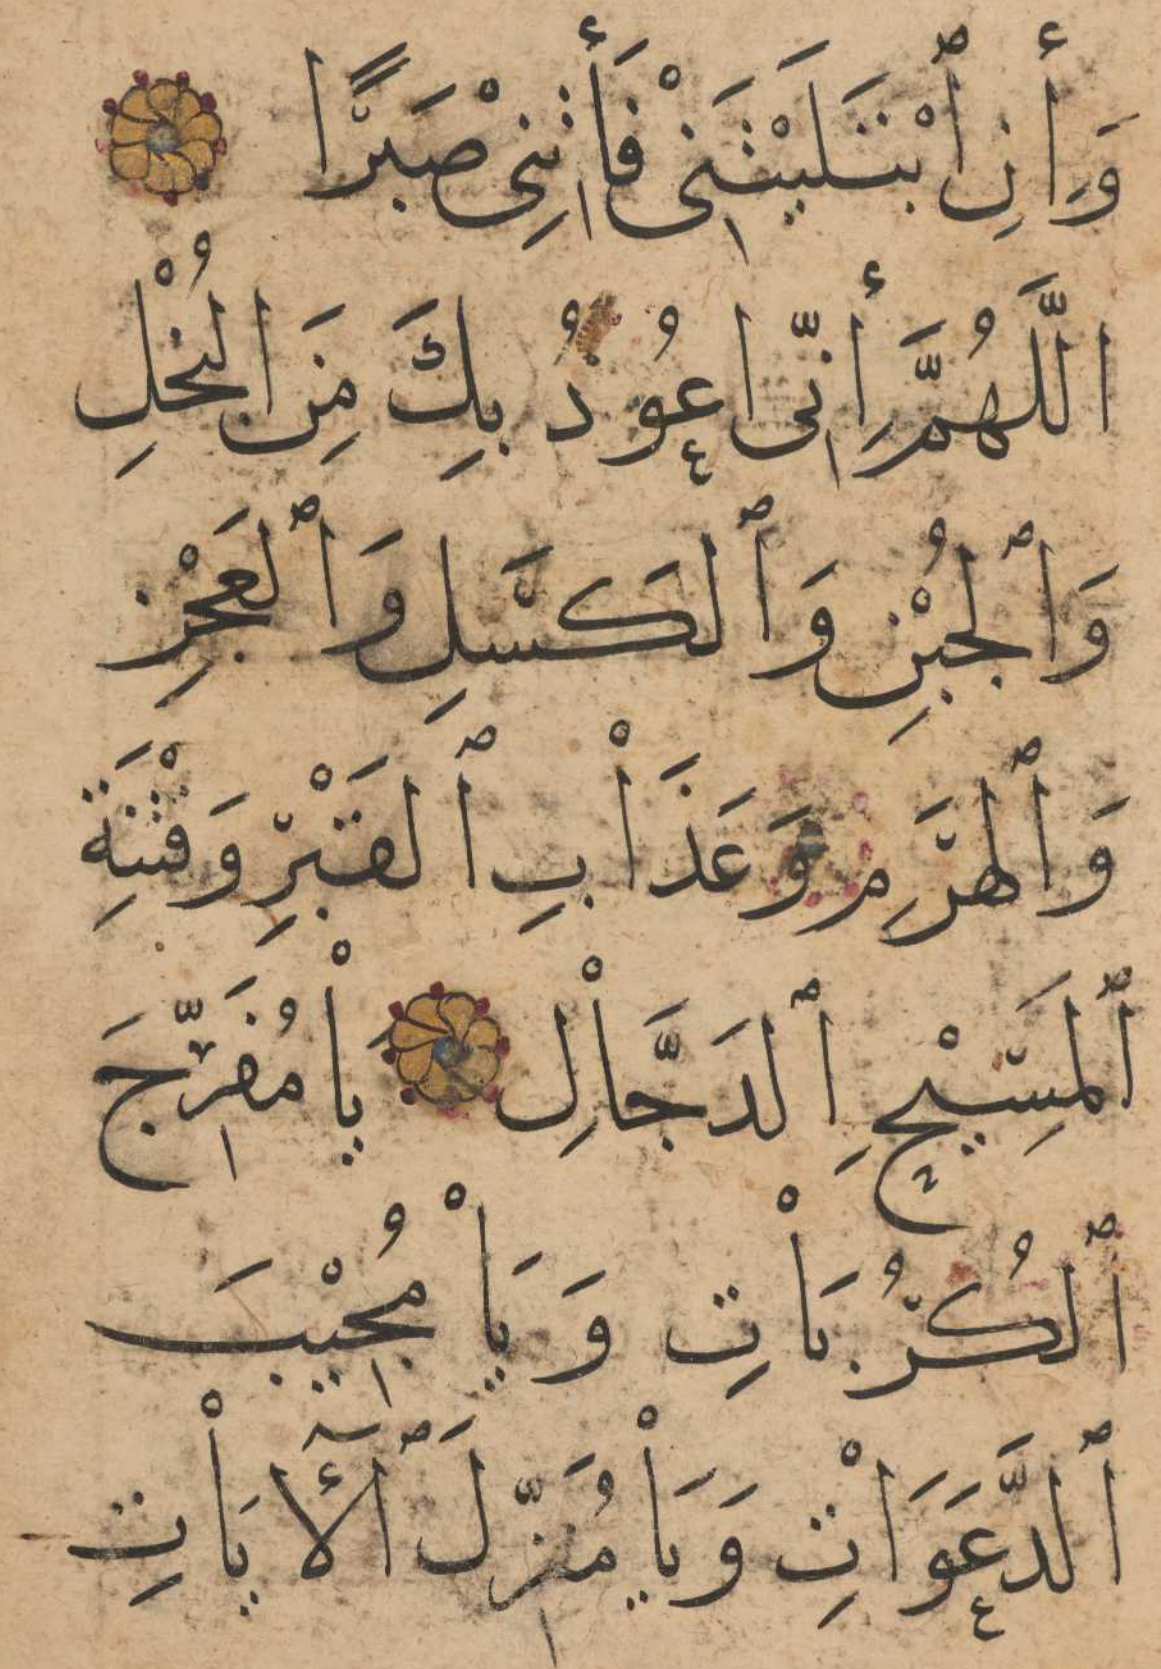 وَأِنِ ٱبْتَلَيْتَنِىْ فَأٰتِنِىْ صَبْرًا
اللَّهُمَّ أِنِّى اعُوذُ بِكَ مِنَ البُخْلِ
وَٱلجُبْنِ وَٱلكَسَلِ وَٱلعَجْزِ
وَٱلهَرَمِ وَعَذَاْبِ ٱلقَبْرِ وَفِتْنَةِ
ٱلمَسِيْحِ ٱلدَجَّاْلِ يَاْ مُفَرِّجَ
ٱلكُرُبَاْتِ وَيَاْ مُجِيْبَ
ٱلدَّعَوَاْتِ وَيَاْ مُنَزِّلَ ٱلْآيَاْتِ